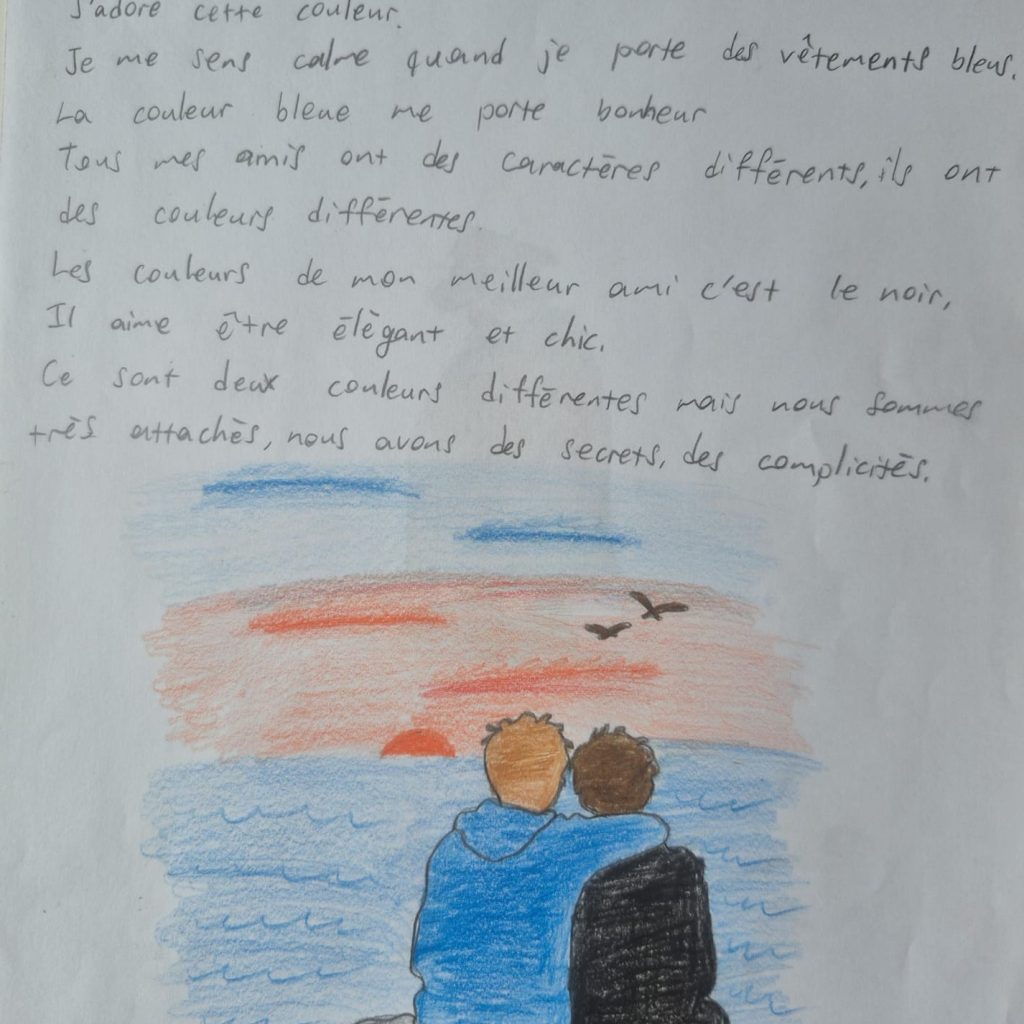 J'adore cette couleur.
Je me sens calme quand je porte des vêtements bleus.
La couleur bleue me porte bonheur
Tous mes amis ont des caractères différents, ils ont
des couleurs différentes.
Les couleurs de mon meilleur ami c'est le noir,
Il aime être élègant et chic.
Ce sont deux couleurs différentes mais nous sommes
très attachés, nous avons des secrets, des complicités.